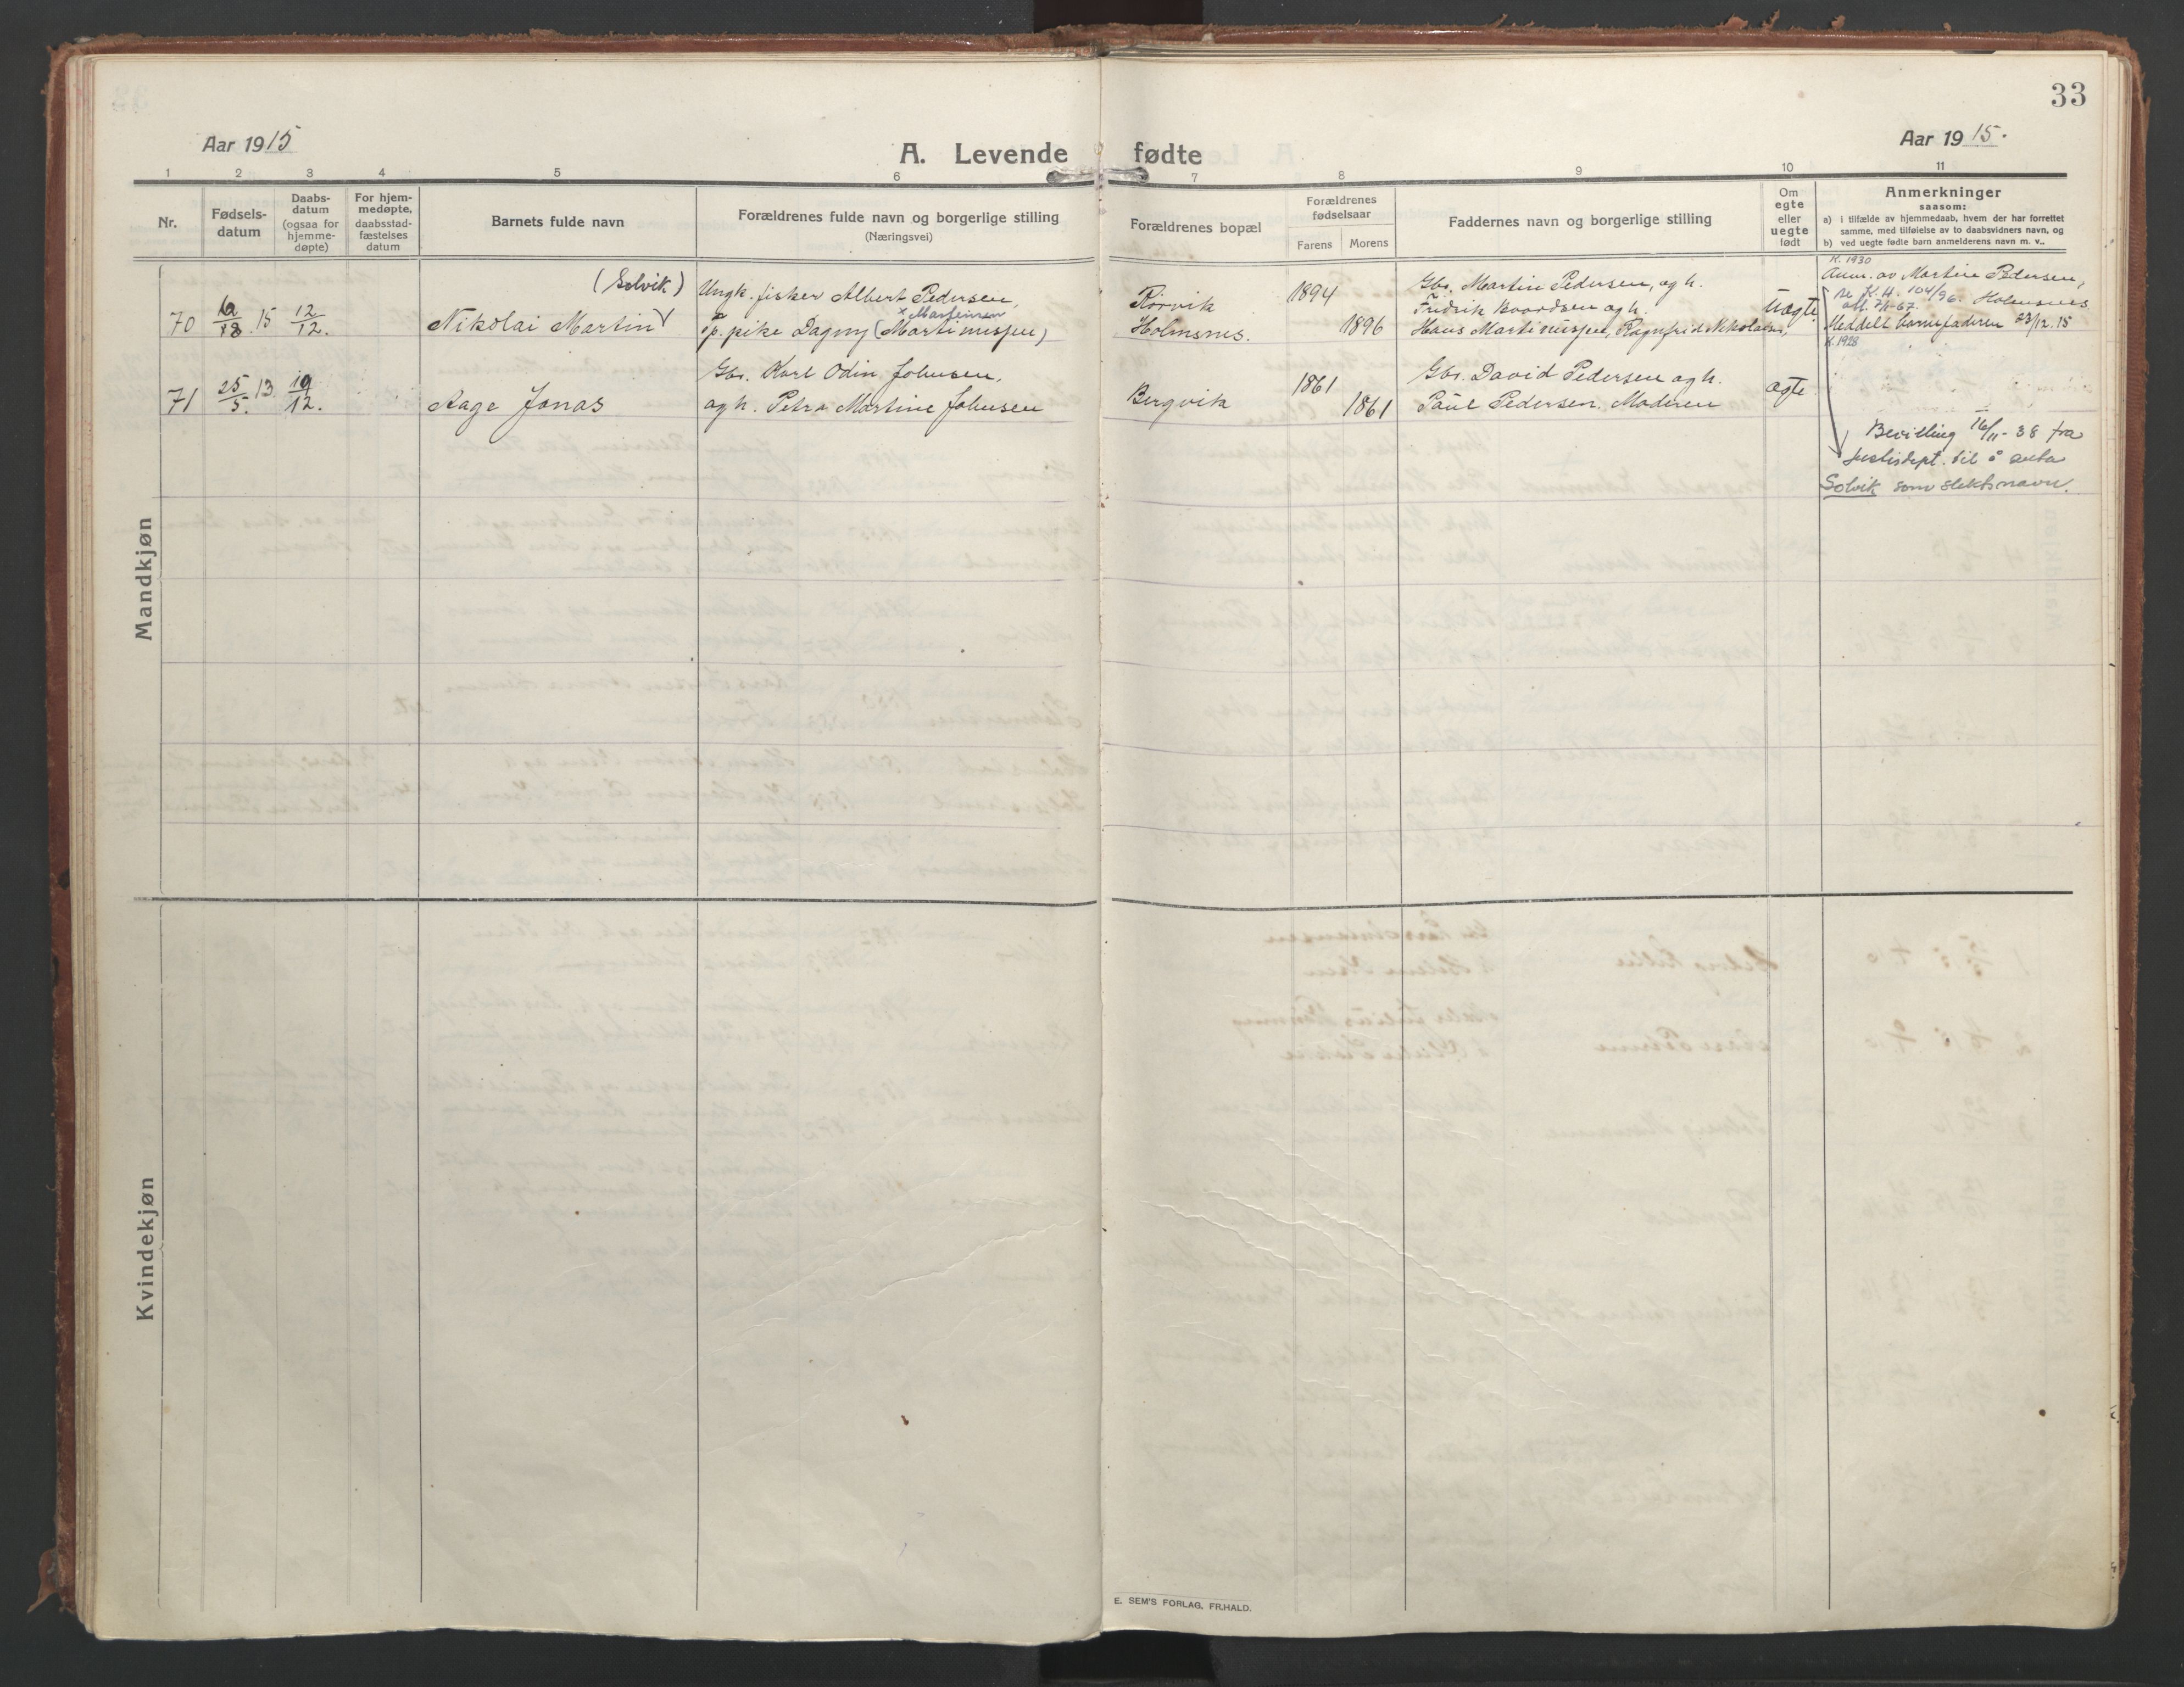 33
Aar 1915
Aar 1915.
A. Levende fødte
1 2 3 4 5 6 7 8 9 10 11
Nr.
Fødsels-
datum
Daabs-
datum
(ogsaa for
hjemme-
døpte)
For hjem-
medøpte,
daabsstad-
fæstelses
datum
Barnets fulde navn
Forældrenes fulde navn og borgerlige stilling
(Næringsvei)
Forældrenes bopæl
Forældrenes
fødselsaar
Farens Morens
Faddernes navn og borgerlige stilling
Om
egte
eller
uegte
født
Anmerkninger
saasom:
a) i tilfælde av hjemmedaab, hvem der har forrettet
samme, med tilføielse av to daabsvidners navn, og
b) ved uegte fødte barn anmelderens navn m. v..
Mandkjøn
70
18. 15
12/12.
(Solvik)
Nikolai Martin
Ungk. fisker Albert Pedersen,
p. pike Dagny (Martinussen)
x Marteinsen
Rörvik
Holmsnes.
1894
1896
Gbr. Martin Pedersen, og h.
Fridrik Baardsen og h.
Hans Martinussen, Ragnfrid Nikolaisen,
uægte
K. 1930
Anm. av Martin Pedersen,
Holmsnes.
se K.H. 104/96.
att. 7/11-67.
Meddelt barnefaderen 23/12.15
K. 1928
71
25/5. 13
19/12.
Aage Jonas
Gbr. Karl Odin Johnsen,
og h. Petra Martine Johnsen
Bergvik
1861
1861
Gbr. David Pedersen og h.
Paul Pedersen. Moderen
ægte
Bevilling 16/11-38 fra
Justisdept. til å anta
Solvik som slektsnavn.
Kvindekjøn
E. SEM'S FORLAG, FR.HALD.